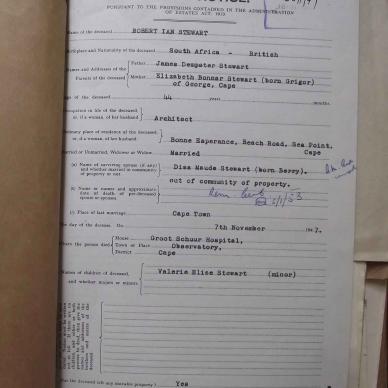 PURSUANT TO THE PROVISIONS CONTAINED IN THE ADMINISTRATION
OF ESTATES ACT, 1913
Name of the deceased ROBERT IAN STEWART
Birthplace and Nationality of the deceased South Africa - British
Names and Addresses of the Parents of the deceased
Father James Dempster Stewart
Mother Elizabeth Bonnar Stewart (born Grigor)
of George, Cape
Age of the deceased 44 years months
Occupation in life of the deceased
or, if a woman, of her husband Architect
Ordinary place of residence of the deceased,
or, if a woman, of her husband Bonne Esperance, Beach Road, Sea Point,
Cape
Married or Unmarried, Widower or Widow Married
(a) Name of surviving spouse (if any)
and whether married in community
of property or not Disa Maude Stewart (born Berry).
out of community of property.
(b) Name or names and approximate
date of death of pre-deceased
spouse or spouses
(c) Place of last marriage Cape Town
The day of the decease. On 7th November 1947.
Where the person died
House Groot Schuur Hospital,
Town or Place Observatory,
District Cape
Names of children of deceased,
and whether majors or minors Valerie Elise Stewart (minor)
Has the deceased left any movable property? Yes